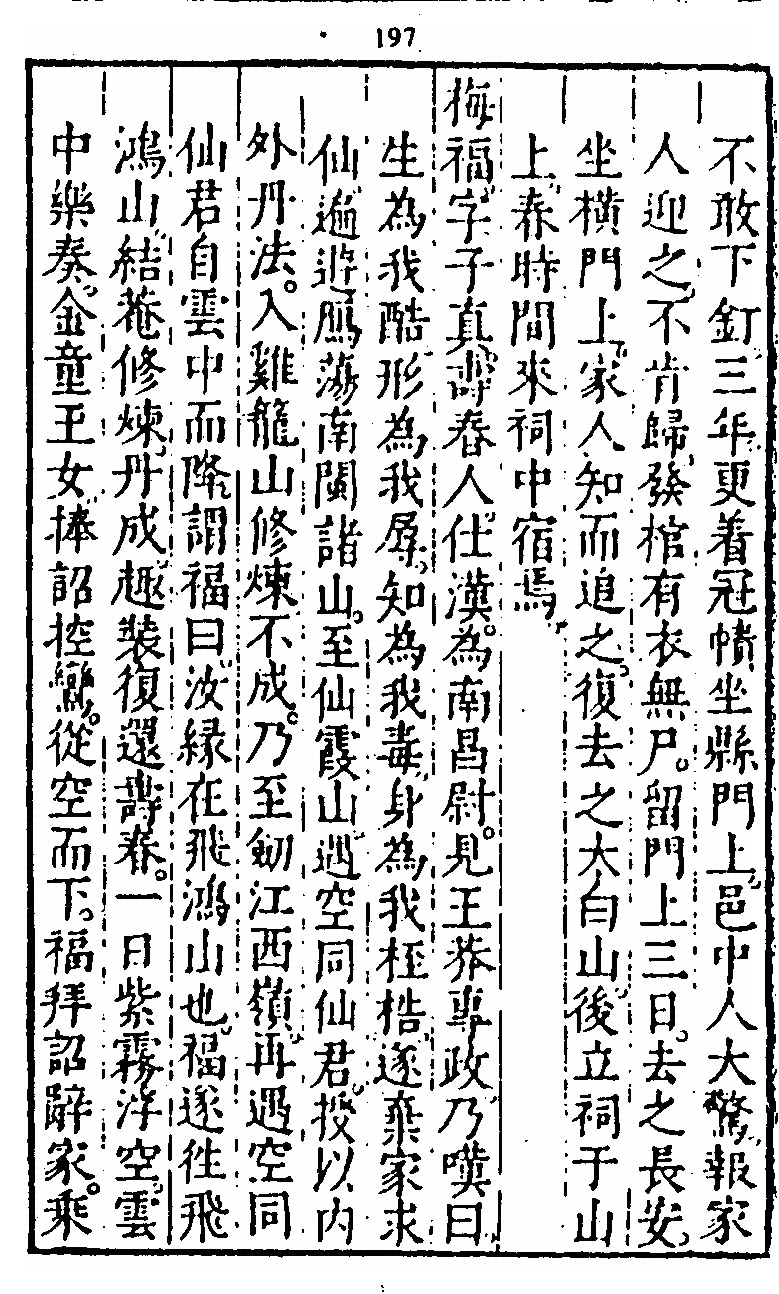 197
不敢下釘三年更着冠幘坐縣門上邑中人大驚報家
人迎之不肯歸發棺有衣無尸。留門上三日。去之長安
坐橫門上家人知而追之。復去之太白山後立祠于山
上春時間來祠中宿焉
梅福字子真壽春人仕漢。為南昌尉。見王莽專政乃嘆曰
生為我酷形為我辱知為我毒身為我桎梏遂棄家求
仙遍遊鴈蕩南閩諸山。至仙霞山遇空同仙君。授以內
外丹法。入雞籠山修煉不成。乃至劒江西嶺再遇空同
仙君自雲中而降謂福曰汝緣在飛鴻山也福遂徃飛
鴻山結菴修煉丹成趣裝復還壽春。一日紫霧浮空雲
中樂奏金童王女捧詔控鸞。從空而下。福拜詔辭家。乘